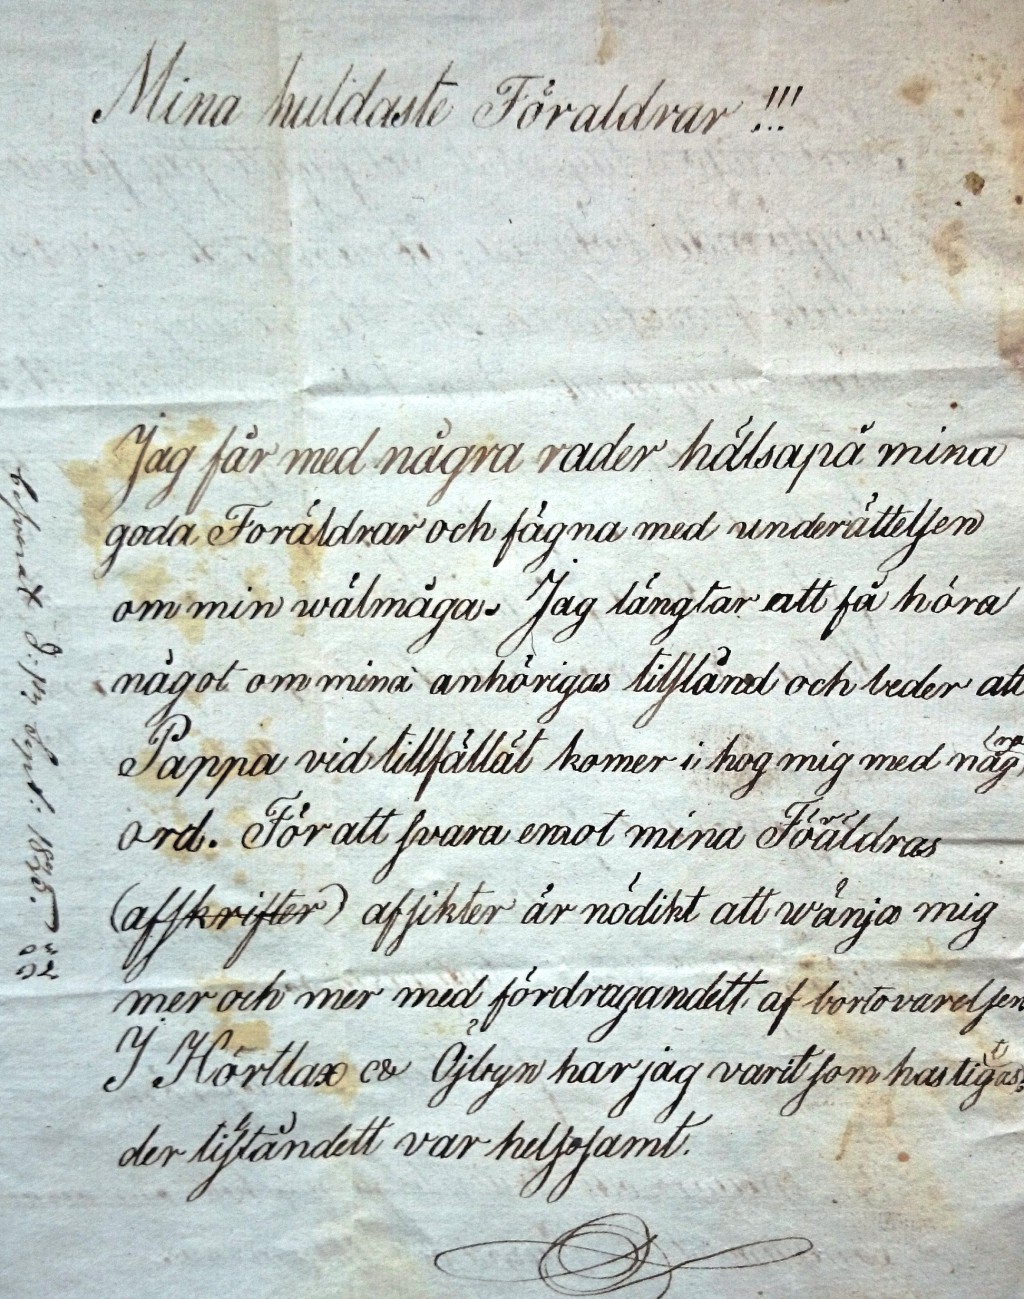 Mina huldaste Föraldrar !!!
Jag får med några rader hälsapå mina
goda Foräldrar och fägna med underättelsen
om min wälmåga. Jag längtar att få höra
något om mina anhörigas tillstånd och beder att
Pappa vid tillfället komer i hog mig med några
ord. För att svara emot mina Föräldras
(afskrifter) afsikter är nödikt att wänja mig
mer och mer med fördragandett af bortovarelsen
I Hörtlax & Öjbyn har jag varit som hastigast
der tillståndett var helsosamt.
besvarat d: 14 Sept: 1835.